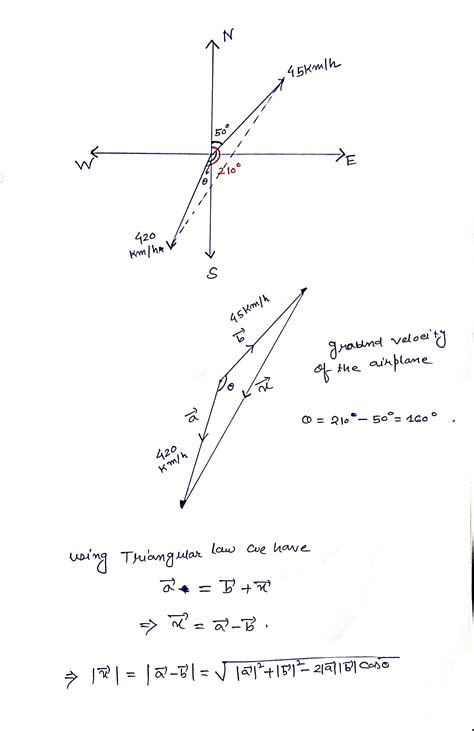 N
45Km/h
50°
W
E
θ
210°
420
Km/h
S
45Km/h
b
ground velocity
of the airplane
θ
x
a
420
Km/h
θ = 210° - 50° = 160° .
Using Triangular law we have
a = b + x
⇒ x = a - b .
⇒ |x| = |a - b| = √|a|² + |b|² - 2|a||b| cosθ